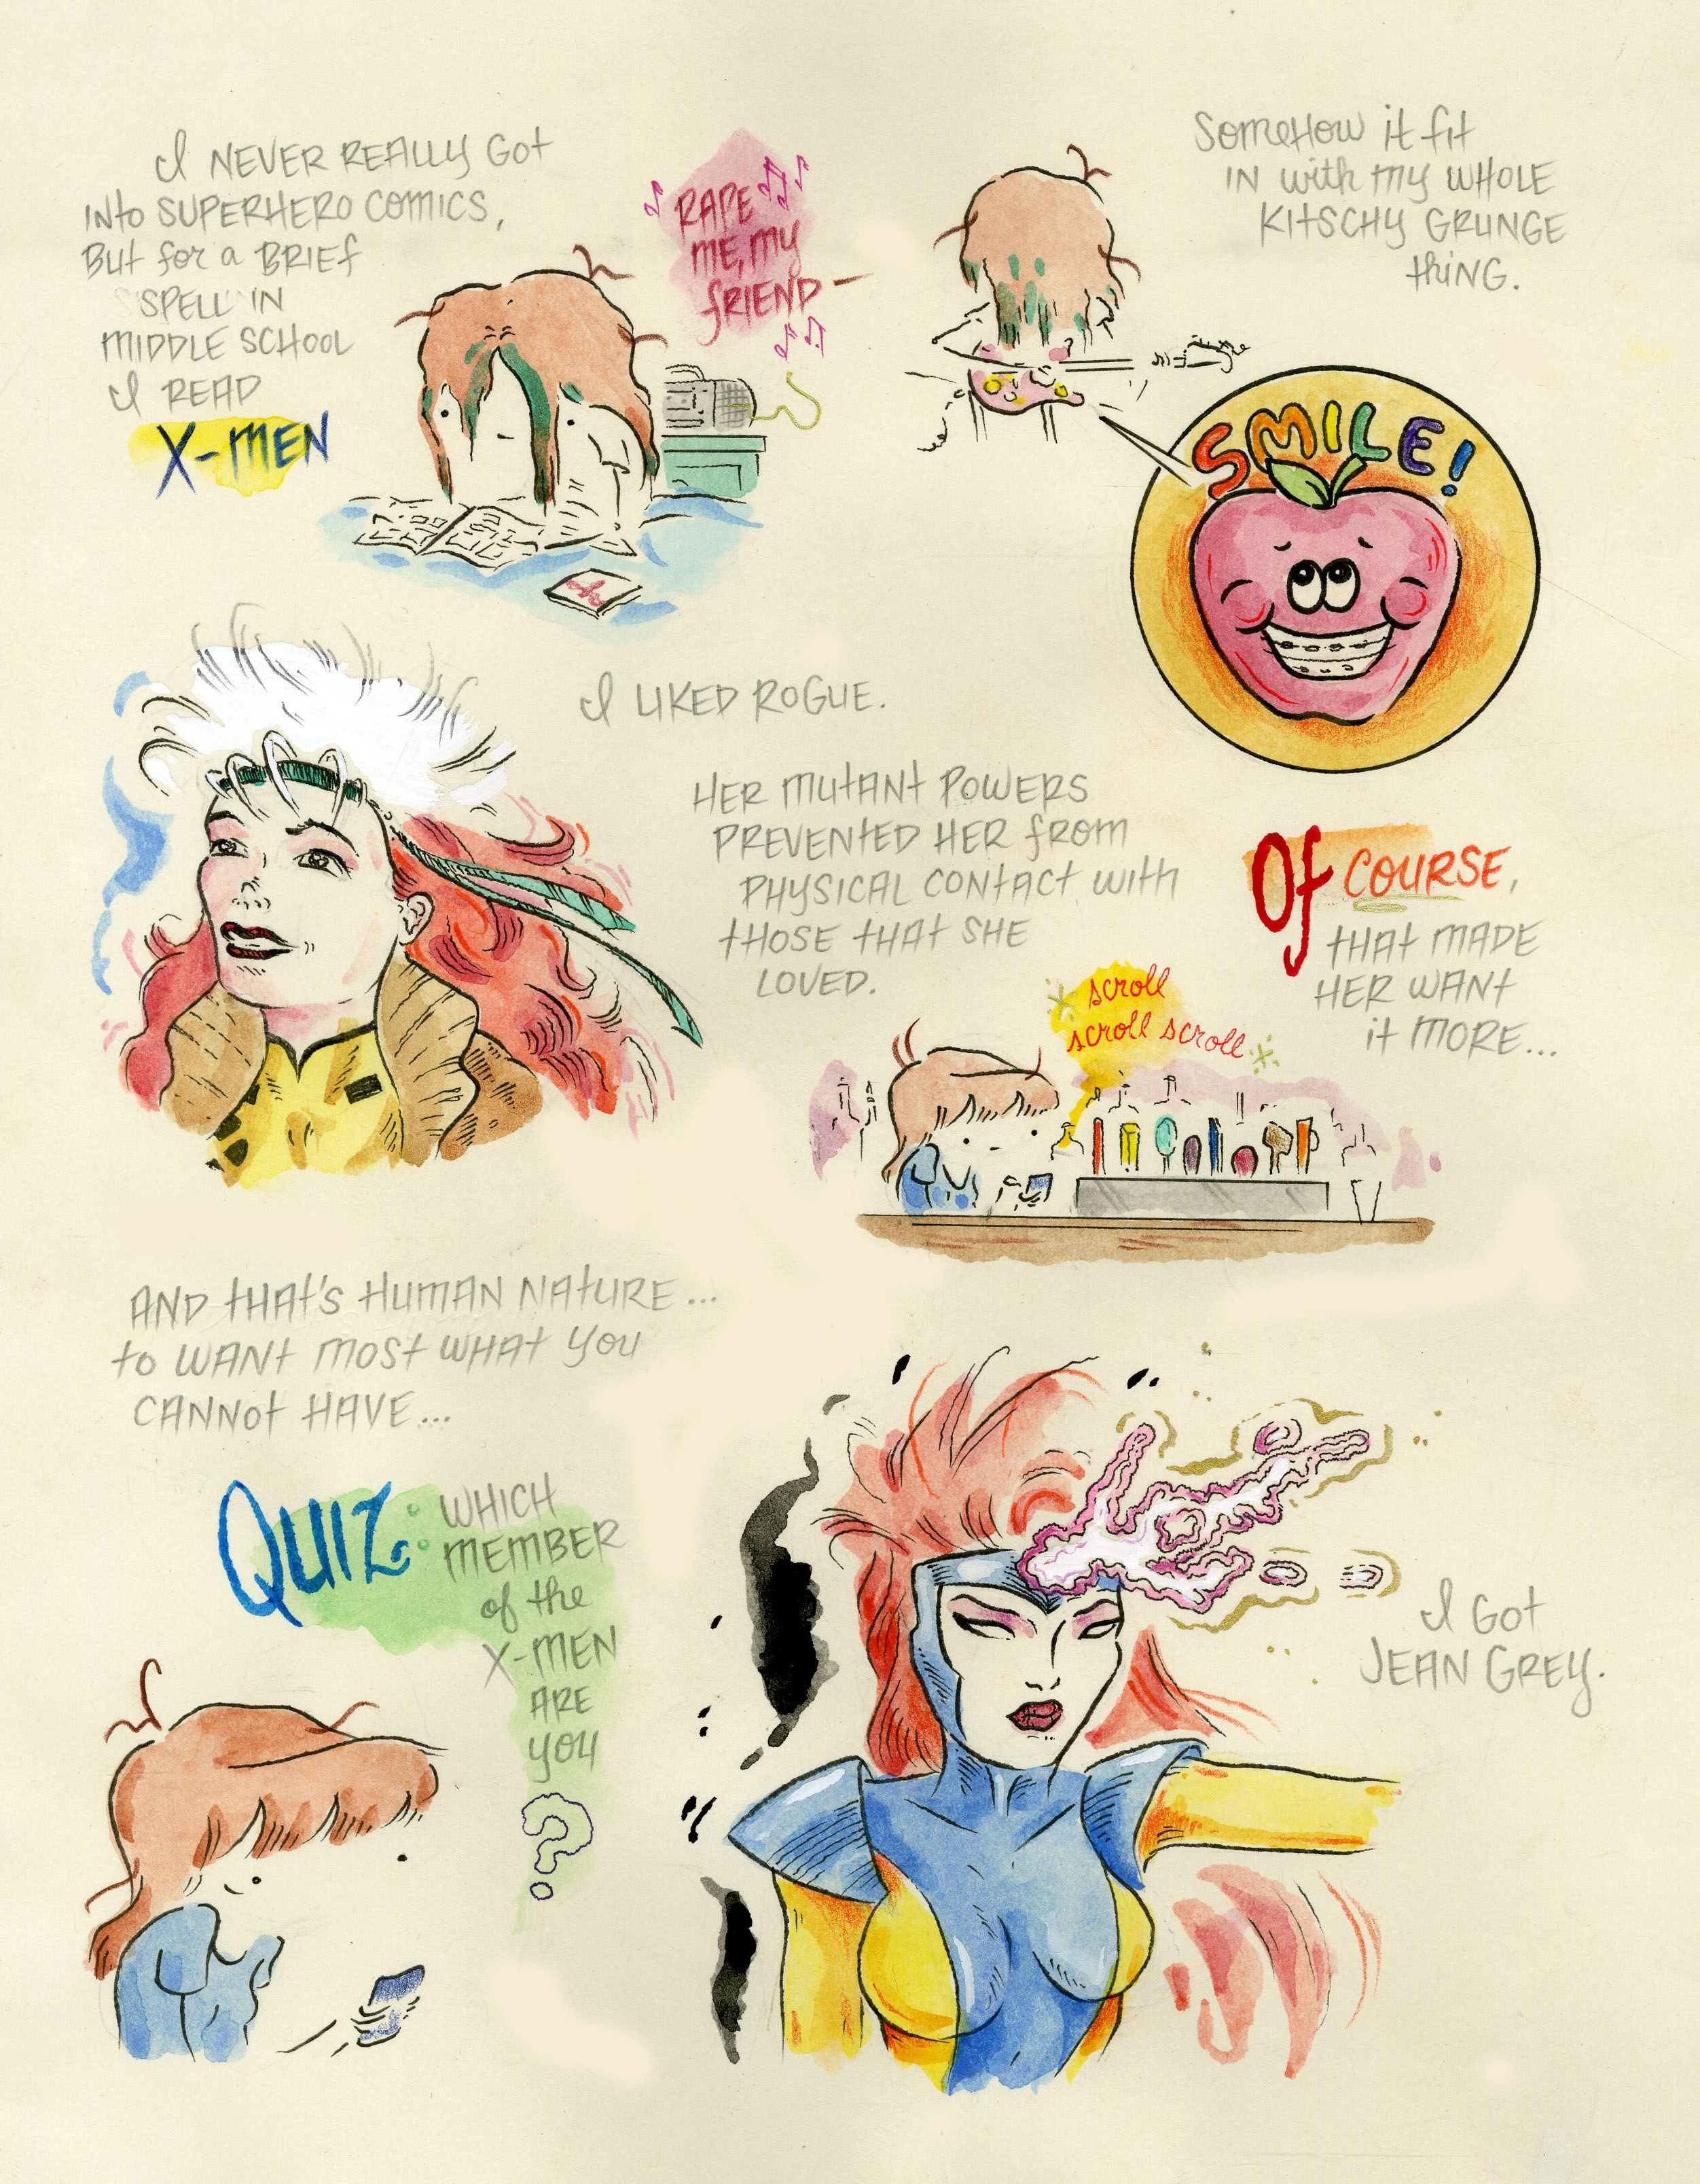 I NEVER REALLY GOT
INTO SUPERHERO COMICS,
BUT for a BRIEF
SPELL IN
MIDDLE SCHOOL
I READ
X-MEN
RAPE
ME, MY
FRIEND-
SOMEHOW it fit
IN with MY WHOLE
KITSCHY GRUNGE
thING.
SMILE!
I LIKED ROGUE.
HER MUTANT POWERS
PREVENTED HER from
PHYSICAL CONTACT with
THOSE THAT SHE
LOVED.
Of COURSE,
THAT MADE
HER WANT
it MORE...
scroll
scroll scroll
AND THAT'S HUMAN NATURE...
to WANT MOST WHAT YOU
CANNOT HAVE...
QUIZ: WHICH
MEMBER
of the
X-MEN
ARE
YOU
?
I GOT
JEAN GREY.